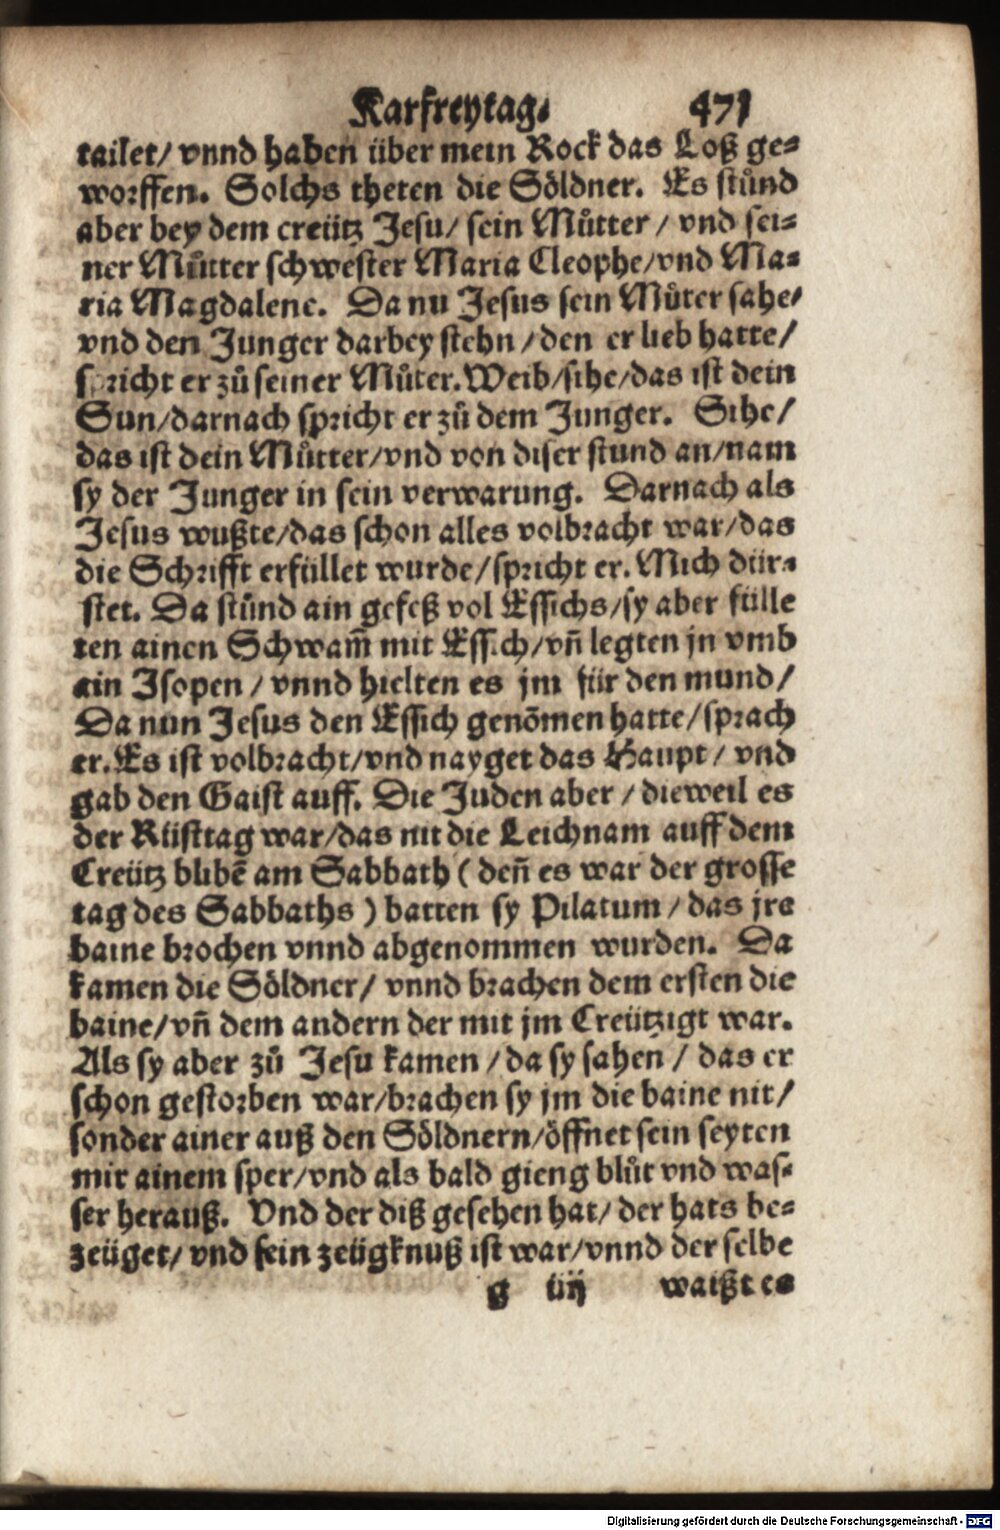 Karfreytag. 471
tailet/ vnnd haben über mein Rock das Loß ge-
worffen. Solchs theten die Söldner. Es stůnd
aber bey dem creütz Jesu/ sein Můtter / vnd sei-
ner Můtter schwester Maria Cleophe/vnd Ma-
ria Magdalene. Da nu Jesus sein Můter sahe/
vnd den Junger darbey stehn /den er lieb hatte/
spricht er zů seiner Můter. Weib/sihe/das ist dein
Sun/darnach spricht er zů dem Junger. Sihe/
das ist dein Můtter/vnd von diser stund an/nam
sy der Junger in sein verwarung. Darnach als
Jesus wußte/das schon alles volbracht war/das
die Schrifft erfüllet wurde/spricht er. Mich dür-
stet. Da stůnd ain gefeß vol Essichs/sy aber fülle
ten ainen Schwam̃ mit Essich/vñ legten jn vmb
ain Isopen / vnnd hielten es jm für den mund/
Da nun Jesus den Essich genõmen hatte/sprach
er. Es ist volbracht/vnd nayget das Haupt/ vnd
gab den Gaist auff. Die Juden aber / dieweil es
der Rüsttag war/das nit die Leichnam auff dem
Creütz blibẽ am Sabbath ( deñ es war der grosse
tag des Sabbaths ) batten sy Pilatum / das jre
baine brochen vnnd abgenommen wurden. Da
kamen die Söldner/ vnnd brachen dem ersten die
baine/vñ dem andern der mit jm Creützigt war.
Als sy aber zů Jesu kamen /da sy sahen / das er
schon gestorben war/brachen sy jm die baine nit/
sonder ainer auß den Söldnern/öffnet sein seyten
mit ainem sper/vnd als bald gieng blůt vnd was-
ser herauß. Vnd der diß gesehen hat/ der hats be-
zeüget/ vnd sein zeügknuß ist war/vnnd der selbe
g iiij waißt es
Digitalisierung gefördert durch die Deutsche Forschungsgemeinschaft - DFG